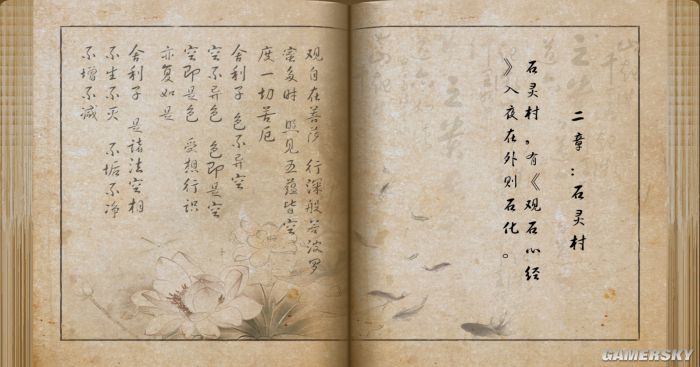 二章：石灵村
石灵村，有《观石心经
》入夜在外则石化。
观自在菩萨 行深般若波罗
蜜多时 照见五蕴皆空
度一切苦厄
舍利子 色不异空
空不异色 色即是空
空即是色 受想行识
亦复如是
舍利子 是诸法空相
不生不灭 不垢不净
不增不减
GAMERSKY